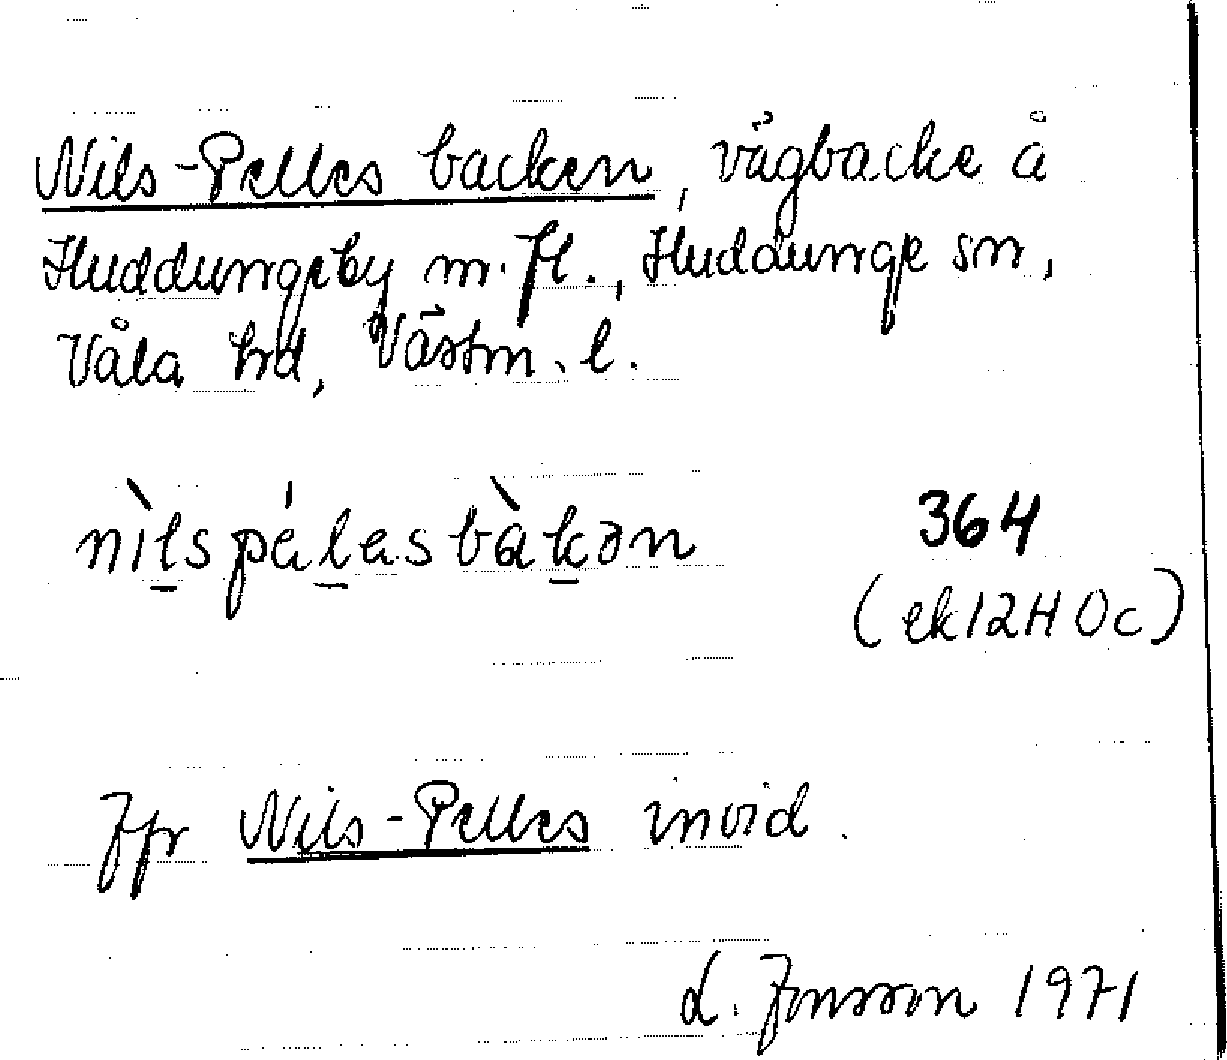 Nils-Pelles backen, vägbacke å
Huddungeby m.fl., Huddunge sn,
Våla hd, Västm. l.
nìl̲spél̲asbàk̲ən 364
(ek 12H 0c)
Jfr Nils-Pelles invid.
L. Jonsson 1971